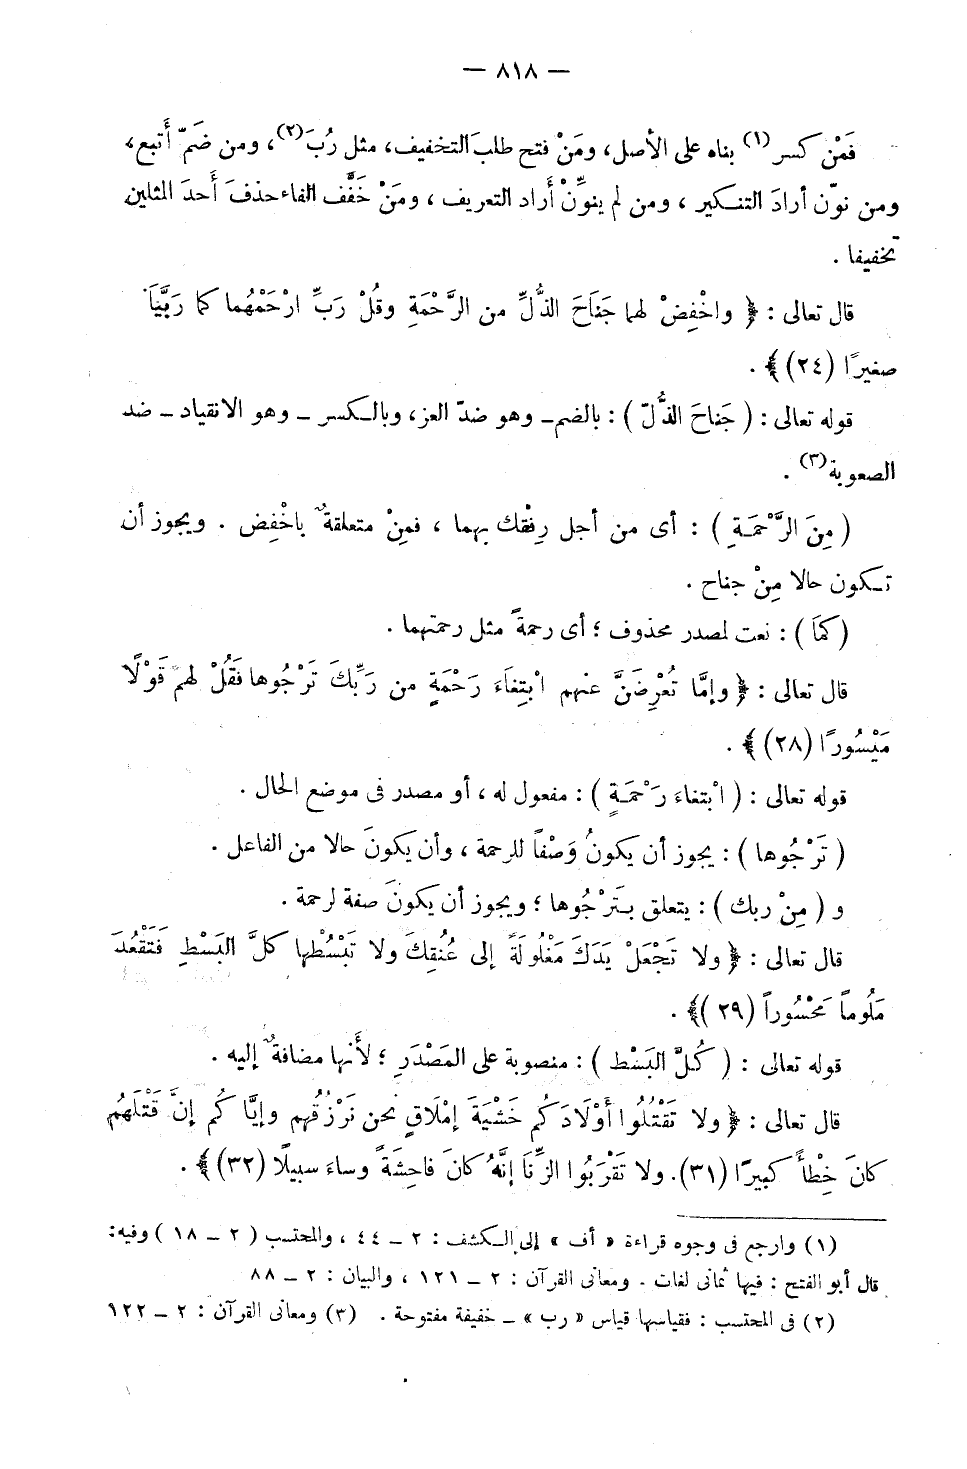 — ٨١٨ —
فَمَنْ كسر(١) بناه على الأصل، ومَنْ فتح طلبَ التخفيف، مثل رُبَ(٢)، ومن ضَمّ أَتبع،
ومن نوّن أرادَ التنكير ، ومن لم ينوِّنْ أَراد التعريف ، ومَنْ خَفَّف الفاء حذفَ أَحدَ المثلين
تخفيفا .
قال تعالى : ﴿ واخْفِضْ لهما جَنَاحَ الذُّلِّ من الرَّحْمَةِ وقُلْ رَبِّ ارْحَمْهُما كما رَبَّيَا
صغيرًا (٢٤) ﴾ .
قوله تعالى : ( جَناحَ الذُّلّ ) : بالضم – وهو ضدّ العز، وبالكسر – وهو الانقياد – ضد
الصعوبة(٣) .
( مِنَ الرَّحْمَةِ ) : أى من أجل رِفْقك بهما ، فمِنْ متعلقةٌ باخْفِض . ويجوز أن
تكون حالا مِنْ جناح .
( كَمَا ) : نعت لمصدر محذوف ؛ أى رحمةً مثل رحمتهما .
قال تعالى : ﴿ وإمَّا تُعْرِضَنَّ عنهم ابْتِغَاءَ رَحْمَةٍ من رَبِّكَ تَرْجُوها فَقُلْ لهمْ قَوْلًا
مَيْسُورًا (٢٨) ﴾ .
قوله تعالى : ( ابْتغاءَ رَحْمَةٍ ) : مفعول له ، أو مصدر فى موضع الحال .
( تَرْجُوها ) : يجوز أن يكونُ وَصْفاً للرحمة ، وأن يكونَ حالا من الفاعل .
و ( مِنْ ربك ) : يتعلق بتَرْجُوها ؛ ويجوز أن يكونَ صفة لرحمة .
قال تعالى : ﴿ ولا تَجْعَلْ يَدَكَ مَغْلُولَةً إلى عُنُقِكَ ولا تَبْسُطْها كلَّ البَسْطِ فَتَقْعُدَ
مَلُوماً مَحْسُوراً (٢٩ )﴾ .
قوله تعالى : ( كُلَّ البَسْط ) : منصوبة على المَصْدَرِ ؛ لأَنها مضافةٌ إليه .
قال تعالى : ﴿ ولا تَقْتُلُوا أَوْلَادَكُم خَشْيَةَ إمْلَاقٍ نحن نَرْزُقُهم وإيَّاكُم إنَّ قَتْلَهُم
كانَ خِطْأً كَبيرًا (٣١). ولا تَقْرَبُوا الزِّنَا إنَّهُ كانَ فاحِشَةً وساءَ سبيلًا (٣٢) ﴾ .
(١) وارجع فى وجوه قراءة « أف » إلى الكشف : ٢ – ٤٤ ، والمحتسب ( ٢ – ١٨ ) وفيه :
قال أبو الفتح : فيها ثمانى لغات . ومعانى القرآن : ٢ – ١٢١ ، والبيان : ٢ – ٨٨
(٢) فى المحتسب : فقياسها قياس « رب » – خفيفة مفتوحة . (٣) ومعانى القرآن : ٢ – ١٢٢